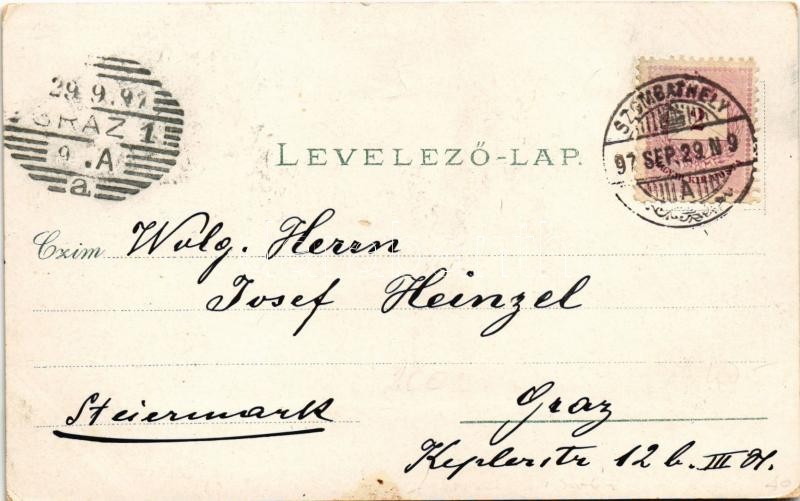 29.9.97
GRAZ 1
9.A
a
SZOMBATHELY
97 SEP. 29 N 9
A
2
LEVELEZŐ-LAP.
Czim Wolg. Herrn
Josef Heinzel
Steiermark Graz
Keplerstr 12 b. III St.